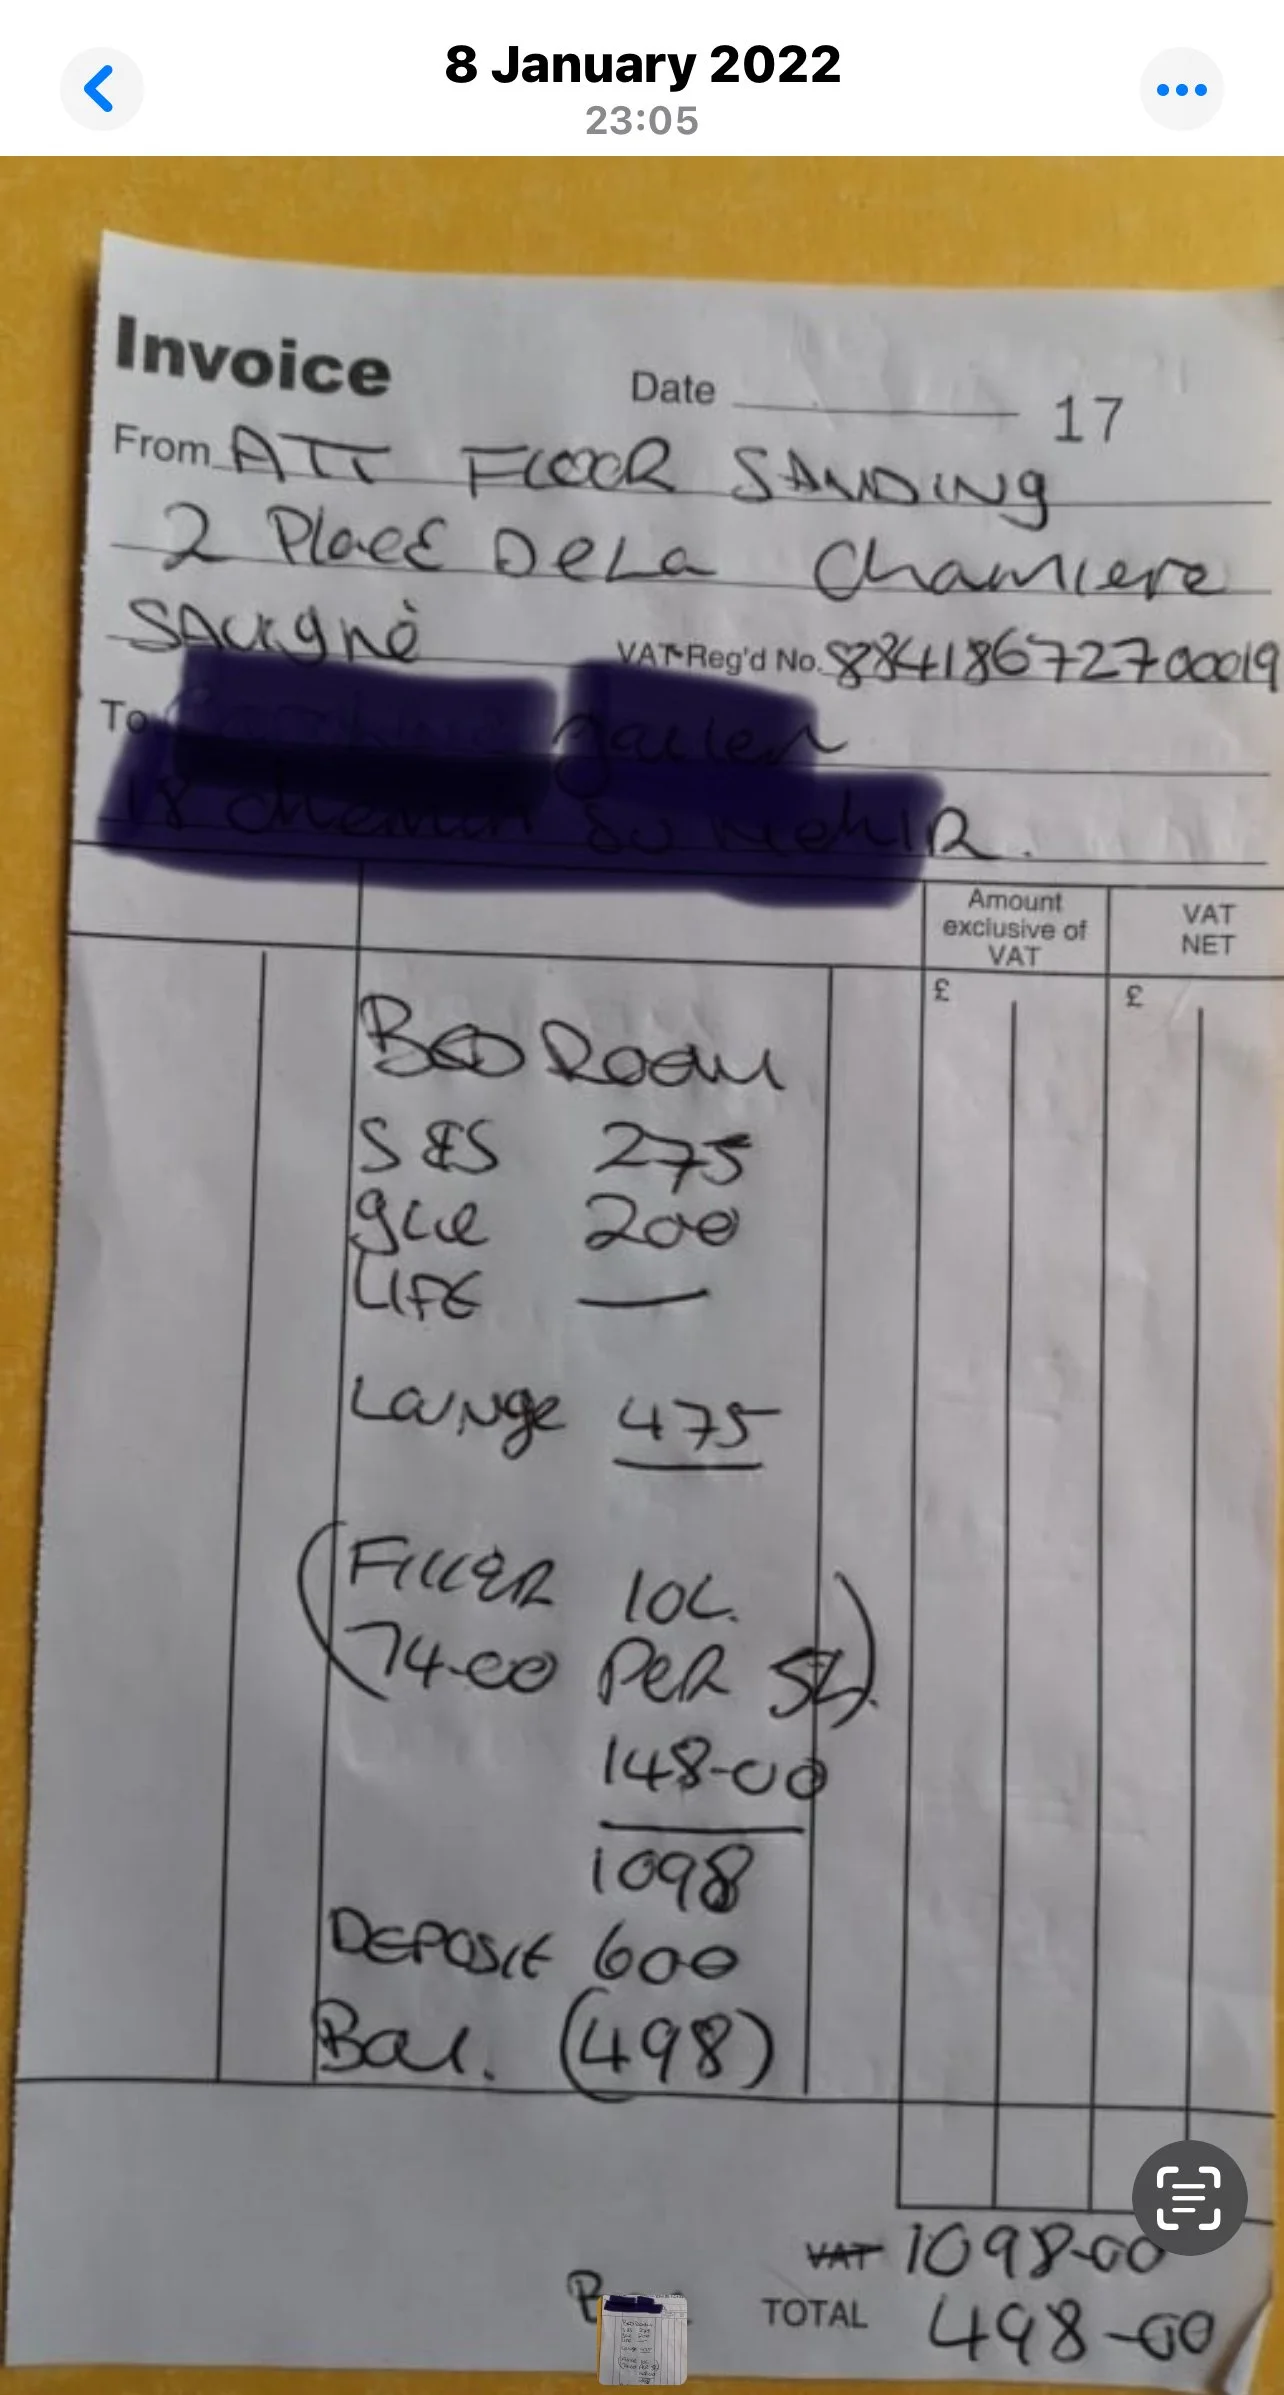 8 January 2022
23:05
Invoice
Date 17
From ATT FLOOR SANDING
2 PlacE DeLa Chamiere
SAVIgné VAT Reg'd No. 88418672700019
To
18 chemin Du
Amount exclusive of VAT
VAT NET
£ £
BED Room
S &S 275
glue 200
LIFE —
LOUNge 475
(FILLER 10L.
74-00 PER 5L).
148-00
1098
DEPOSIt 600
Bal. (498)
VAT 1098-00
TOTAL 498-00